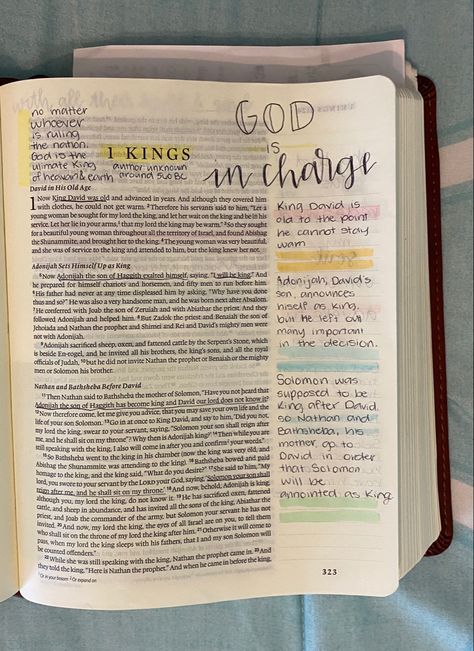 no matter
whoever
is ruling
the nation.
God is the
ulimate King
of heaven & earth
GOD
is
in charge
1 KINGS
author unknown
around 540 BC
David in His Old Age
1 Now King David was old and advanced in years. And although they covered him
with clothes, he could not get warm. 2 Therefore his servants said to him, "Let a
young woman be sought for my lord the king, and let her wait on the king and be in his
service. Let her lie in your arms, that my lord the king may be warm." 3 So they sought
for a beautiful young woman throughout all the territory of Israel, and found Abishag
the Shunammite, and brought her to the king. 4 The young woman was very beautiful,
and she was of service to the king and attended to him, but the king knew her not.
Adonijah Sets Himself Up as King
5 Now Adonijah the son of Haggith exalted himself, saying, "I will be king." And
he prepared for himself chariots and horsemen, and fifty men to run before him.
6 His father had never at any time displeased him by asking, "Why have you done
thus and so?" He was also a very handsome man, and he was born next after Absalom.
7 He conferred with Joab the son of Zeruiah and with Abiathar the priest. And they
followed Adonijah and helped him. 8 But Zadok the priest and Benaiah the son of
Jehoiada and Nathan the prophet and Shimei and Rei and David's mighty men were
not with Adonijah.
9 Adonijah sacrificed sheep, oxen, and fattened cattle by the Serpent's Stone, which
is beside En-rogel, and he invited all his brothers, the king's sons, and all the royal
officials of Judah, 10 but he did not invite Nathan the prophet or Benaiah or the mighty
men or Solomon his brother.
Nathan and Bathsheba Before David
11 Then Nathan said to Bathsheba the mother of Solomon, "Have you not heard that
Adonijah the son of Haggith has become king and David our lord does not know it?
12 Now therefore come, let me give you advice, that you may save your own life and the
life of your son Solomon. 13 Go in at once to King David, and say to him, 'Did you not,
my lord the king, swear to your servant, saying, "Solomon your son shall reign after
me, and he shall sit on my throne"? Why then is Adonijah king?' 14 Then while you are
still speaking with the king, I also will come in after you and confirm your words."
15 So Bathsheba went to the king in his chamber (now the king was very old, and
Abishag the Shunammite was attending to the king). 16 Bathsheba bowed and paid
homage to the king, and the king said, "What do you desire?" 17 She said to him, "My
lord, you swore to your servant by the LORD your God, saying, 'Solomon your son shall
reign after me, and he shall sit on my throne.' 18 And now, behold, Adonijah is king,
although you, my lord the king, do not know it. 19 He has sacrificed oxen, fattened
cattle, and sheep in abundance, and has invited all the sons of the king, Abiathar the
priest, and Joab the commander of the army, but Solomon your servant he has not
invited. 20 And now, my lord the king, the eyes of all Israel are on you, to tell them
who shall sit on the throne of my lord the king after him. 21 Otherwise it will come to
pass, when my lord the king sleeps with his fathers, that I and my son Solomon will
be counted offenders."
22 While she was still speaking with the king, Nathan the prophet came in. 23 And
they told the king, "Here is Nathan the prophet." And when he came in before the king,
1 Or in your bosom 2 Or expand on
323
King David is
old to the point
he cannot stay
warm
Adonijah, David's
son, announces
hiself as king,
but he left out
many important
in the decision.
Solomon was
supposed to be
King after David,
so Nathan and
Bathsheba, his
mother, go to
David in order
that Solomon
will be
annointed as King